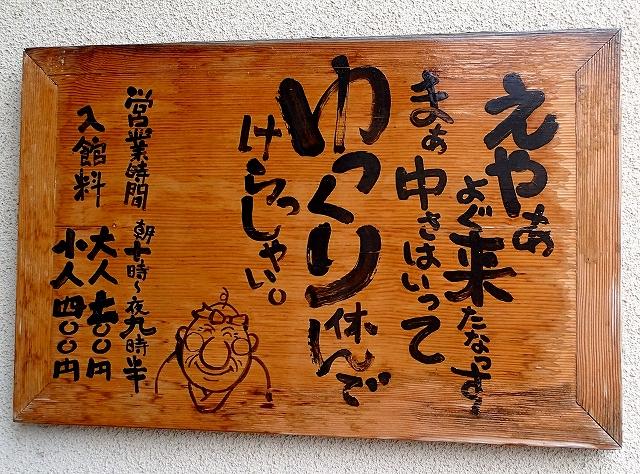 えやぁ
よぐ来たなっすー
まぁ中さはいって
ゆっくり休んで
けらっしゃい。
営業時間 朝七時〜夜九時半
入館料 大人 〇〇円
小人 四〇〇円